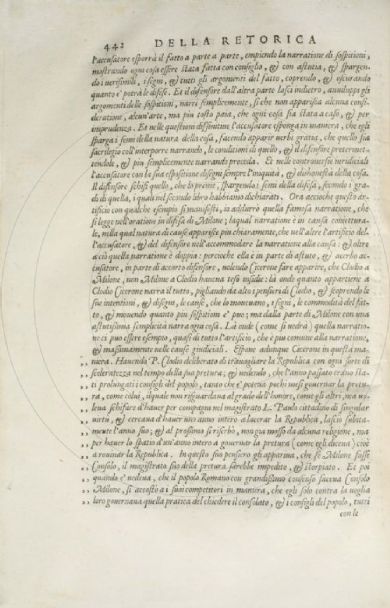 442 DELLA RETORICA
l'accusatore esporrà il fatto a parte a parte, empiendo la narratione di sospitioni,
mostrando ogni cosa essere stata fatta con consiglio, & con astutia, & spargen-
do i verisimili, i segni, & tutti gli argomenti del fatto, coprendo, & oscurando
quanto e' potrà le difese. Et il difensore dall'altra parte lasci indietro, aviluppi gli
argomenti delle sospitioni, narri semplicemente, sì che non apparisca alcuna consi-
deratione, alcun'arte, ma più tosto paia, che ogni cosa sia stata a caso, & per
imprudenza. Et nelle questioni diffinitive l'accusatore esponga in maniera, che egli
sparga i semi della natura della cosa, facendo apparir verbi gratia, che quello sia
sacrilegio coll'interporre narrando, le conditioni di quello, & il difensore pretermet-
tendole, & più semplicemente narrando proceda. Et nelle controversie iuridiciali
l'accusatore con la sua espositione disegni sempre l'iniquità, & dishonestà della cosa.
Il difensore schifi quello, che lo preme, spargendo i semi della difesa, secondo i gra-
di di quella, i quali nel secondo libro habbiamo dichiarati. Ora accioche questo ar-
tificio con qualche esempio s'manifesti, io addurrò quella famosa narratione, che
si legge nell'oratione in difesa di Milone; laqual narratione è in causa coniettura-
le, nella qual natura di cause apparisce più chiaramente, che nell'altre l'artificio del-
l'accusatore, & del difensore nell'accommodare la narratione alla causa: & oltre
a ciò quella narratione è doppia: percioche ella è in parte di astuto, & acerbo ac-
cusatore, in parte di accorto difensore, volendo Cicerone fare apparire, che Clodio a
Milone, non Milone a Clodio haveva tese insidie: là onde quanto appartiene a
Clodio Cicerone narra il tutto, pigliando da alto i pensieri di Clodio, & scoprendo le
sue intentioni, & disegni, le cause, che lo movevano, i segni, le commodità del fat-
to, & movendo quanto più sospitioni e' può; ma dalla parte di Milone con una
astutissima semplicità narra ogni cosa. Là onde (come si vedrà) quella narratio-
ne ci può essere esempio, quasi di tutto l'artificio, che è più comune alla narratione,
& massimamente nelle cause giudiciali. Espone adunque Cicerone in questa ma-
niera. Havendo P. Clodio deliberato di travagliare la Republica con ogni sorte di
,, sceleratezza nel tempo della sua pretura; & vedendo, che l'anno passato erano sta-
,, ti prolungati i consigli del popolo, tanto che e' poteva pochi mesi governar la pretu-
,, ra, come colui, ilquale non risguardava al grado dell'honore, come gli altri, ma vo-
,, leva schifare d'haver per compagno nel magistrato L. Paulo cittadino di singular
,, virtù, & cercava d'haver uno anno intero a lacerar la Republica, lasciò subita-
,, mente l'anno suo; & al prossimo si riserbò, non già mosso da alcuna religione, ma
,, per haver lo spatio d'un'anno intero a governar la pretura (come egli diceva) cioè
,, a rovinar la Republica. In questo suo pensiero gli appariva, che se Milone fusse
,, Consolo, il magistrato suo della pretura sarebbe impedito, & storpiato. Et poi
,, quando e' vedeva, che il popolo Romano con grandissimo consenso faceva Consolo
,, Milone, si accostò a i suoi competitori in maniera, che egli solo contra la voglia
,, loro governava quella pratica del chiedere il consolato, & i consigli del popolo, tutti
con le